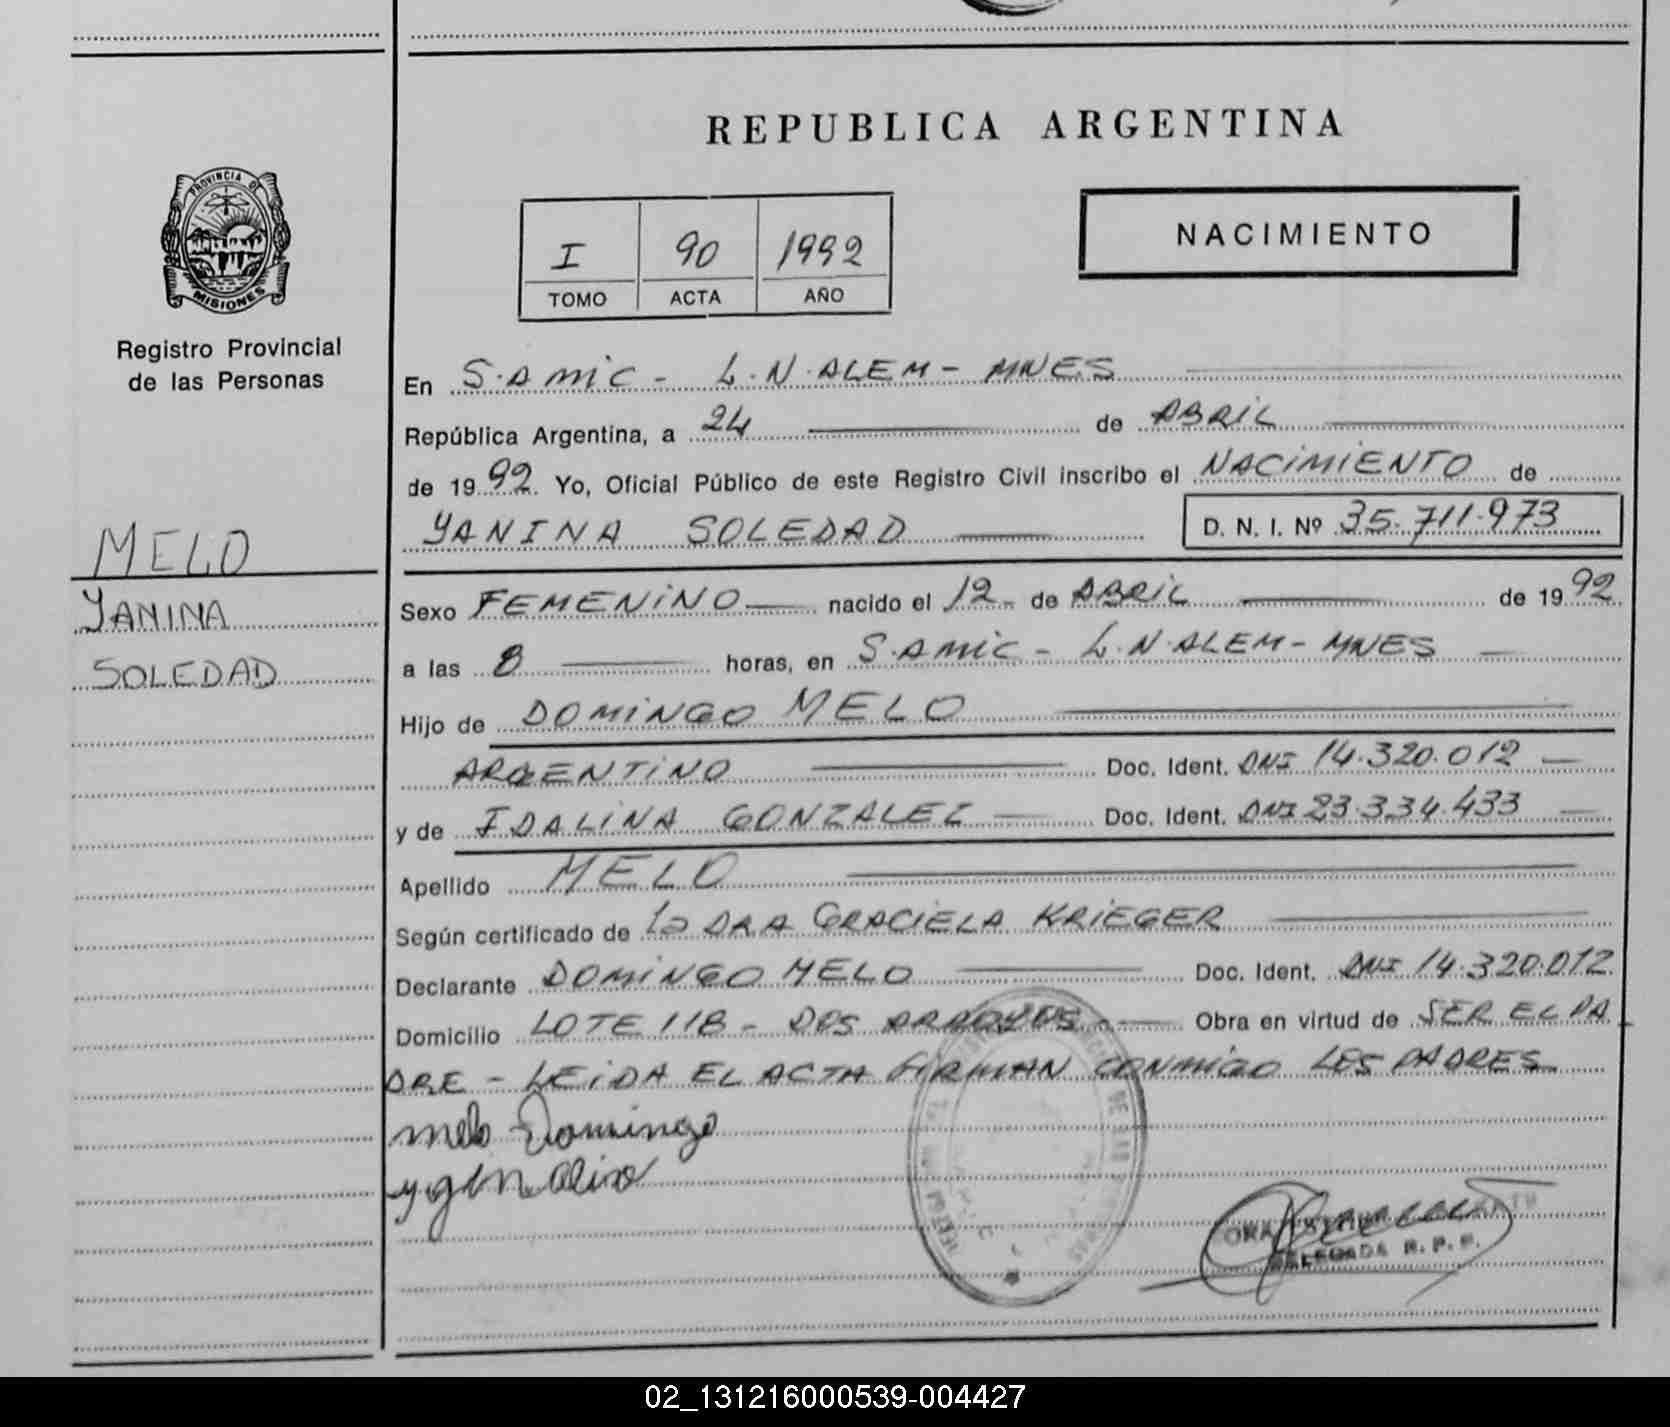 REPUBLICA ARGENTINA
PROVINCIA DE
MISIONES
Registro Provincial
de las Personas
I 90 1992
TOMO ACTA AÑO
NACIMIENTO
En S.AMIC - L.N.ALEM - MNES
República Argentina, a 24 de ABRIL
de 1992. Yo, Oficial Público de este Registro Civil inscribo el NACIMIENTO de
YANINA SOLEDAD D. N. I. Nº 35.711.973
MELO
YANINA
SOLEDAD
Sexo FEMENINO nacido el 12 de ABRIL de 1992
a las 8 horas, en S.AMIC - L.N.ALEM - MNES
Hijo de DOMINGO MELO
ARGENTINO Doc. Ident. DNI 14.320.012
y de IDALINA GONZALEZ Doc. Ident. DNI 23.334.433
Apellido MELO
Según certificado de La DRA GRACIELA KRIEGER
Declarante DOMINGO MELO Doc. Ident. DNI 14.320.012
Domicilio LOTE 118 - DOS ARROYOS - Obra en virtud de SER EL PA
DRE - LEIDA EL ACTA FIRMAN CONMIGO LOS PADRES
Melo Domingo
DELEGADA R. P. P.
02_131216000539-004427